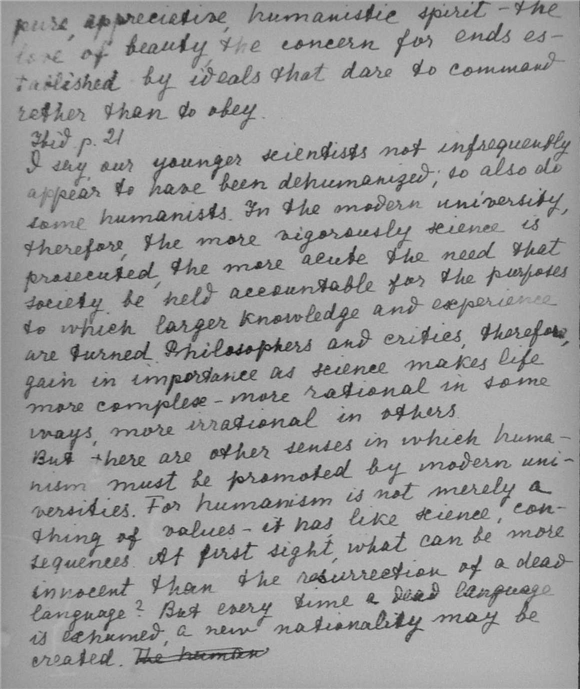 pure, appreciative, humanistic spirit - the
love of beauty, the concern for ends es-
tablished by ideals that dare to command
rether than to obey.
Ibid p. 21
I say, our younger scientists not infrequently
appear to have been dehumanized; so also do
some humanists. In the modern university,
therefore, the more vigorously science is
prosecuted, the more acute the need that
society be held accountable for the purposes
to which larger knowledge and experience
are turned. Philosophers and critics, therefore,
gain in importance as science makes life
more complex - more rational in some
ways, more irrational in others.
But there are other senses in which huma-
nism must be promoted by modern uni-
versities. For humanism is not merely a
thing of values - it has like science, con-
sequences. At first sight, what can be more
innocent than the resurrection of a dead
language? But every time a dead language
is exhumed, a new nationality may be
created. The human